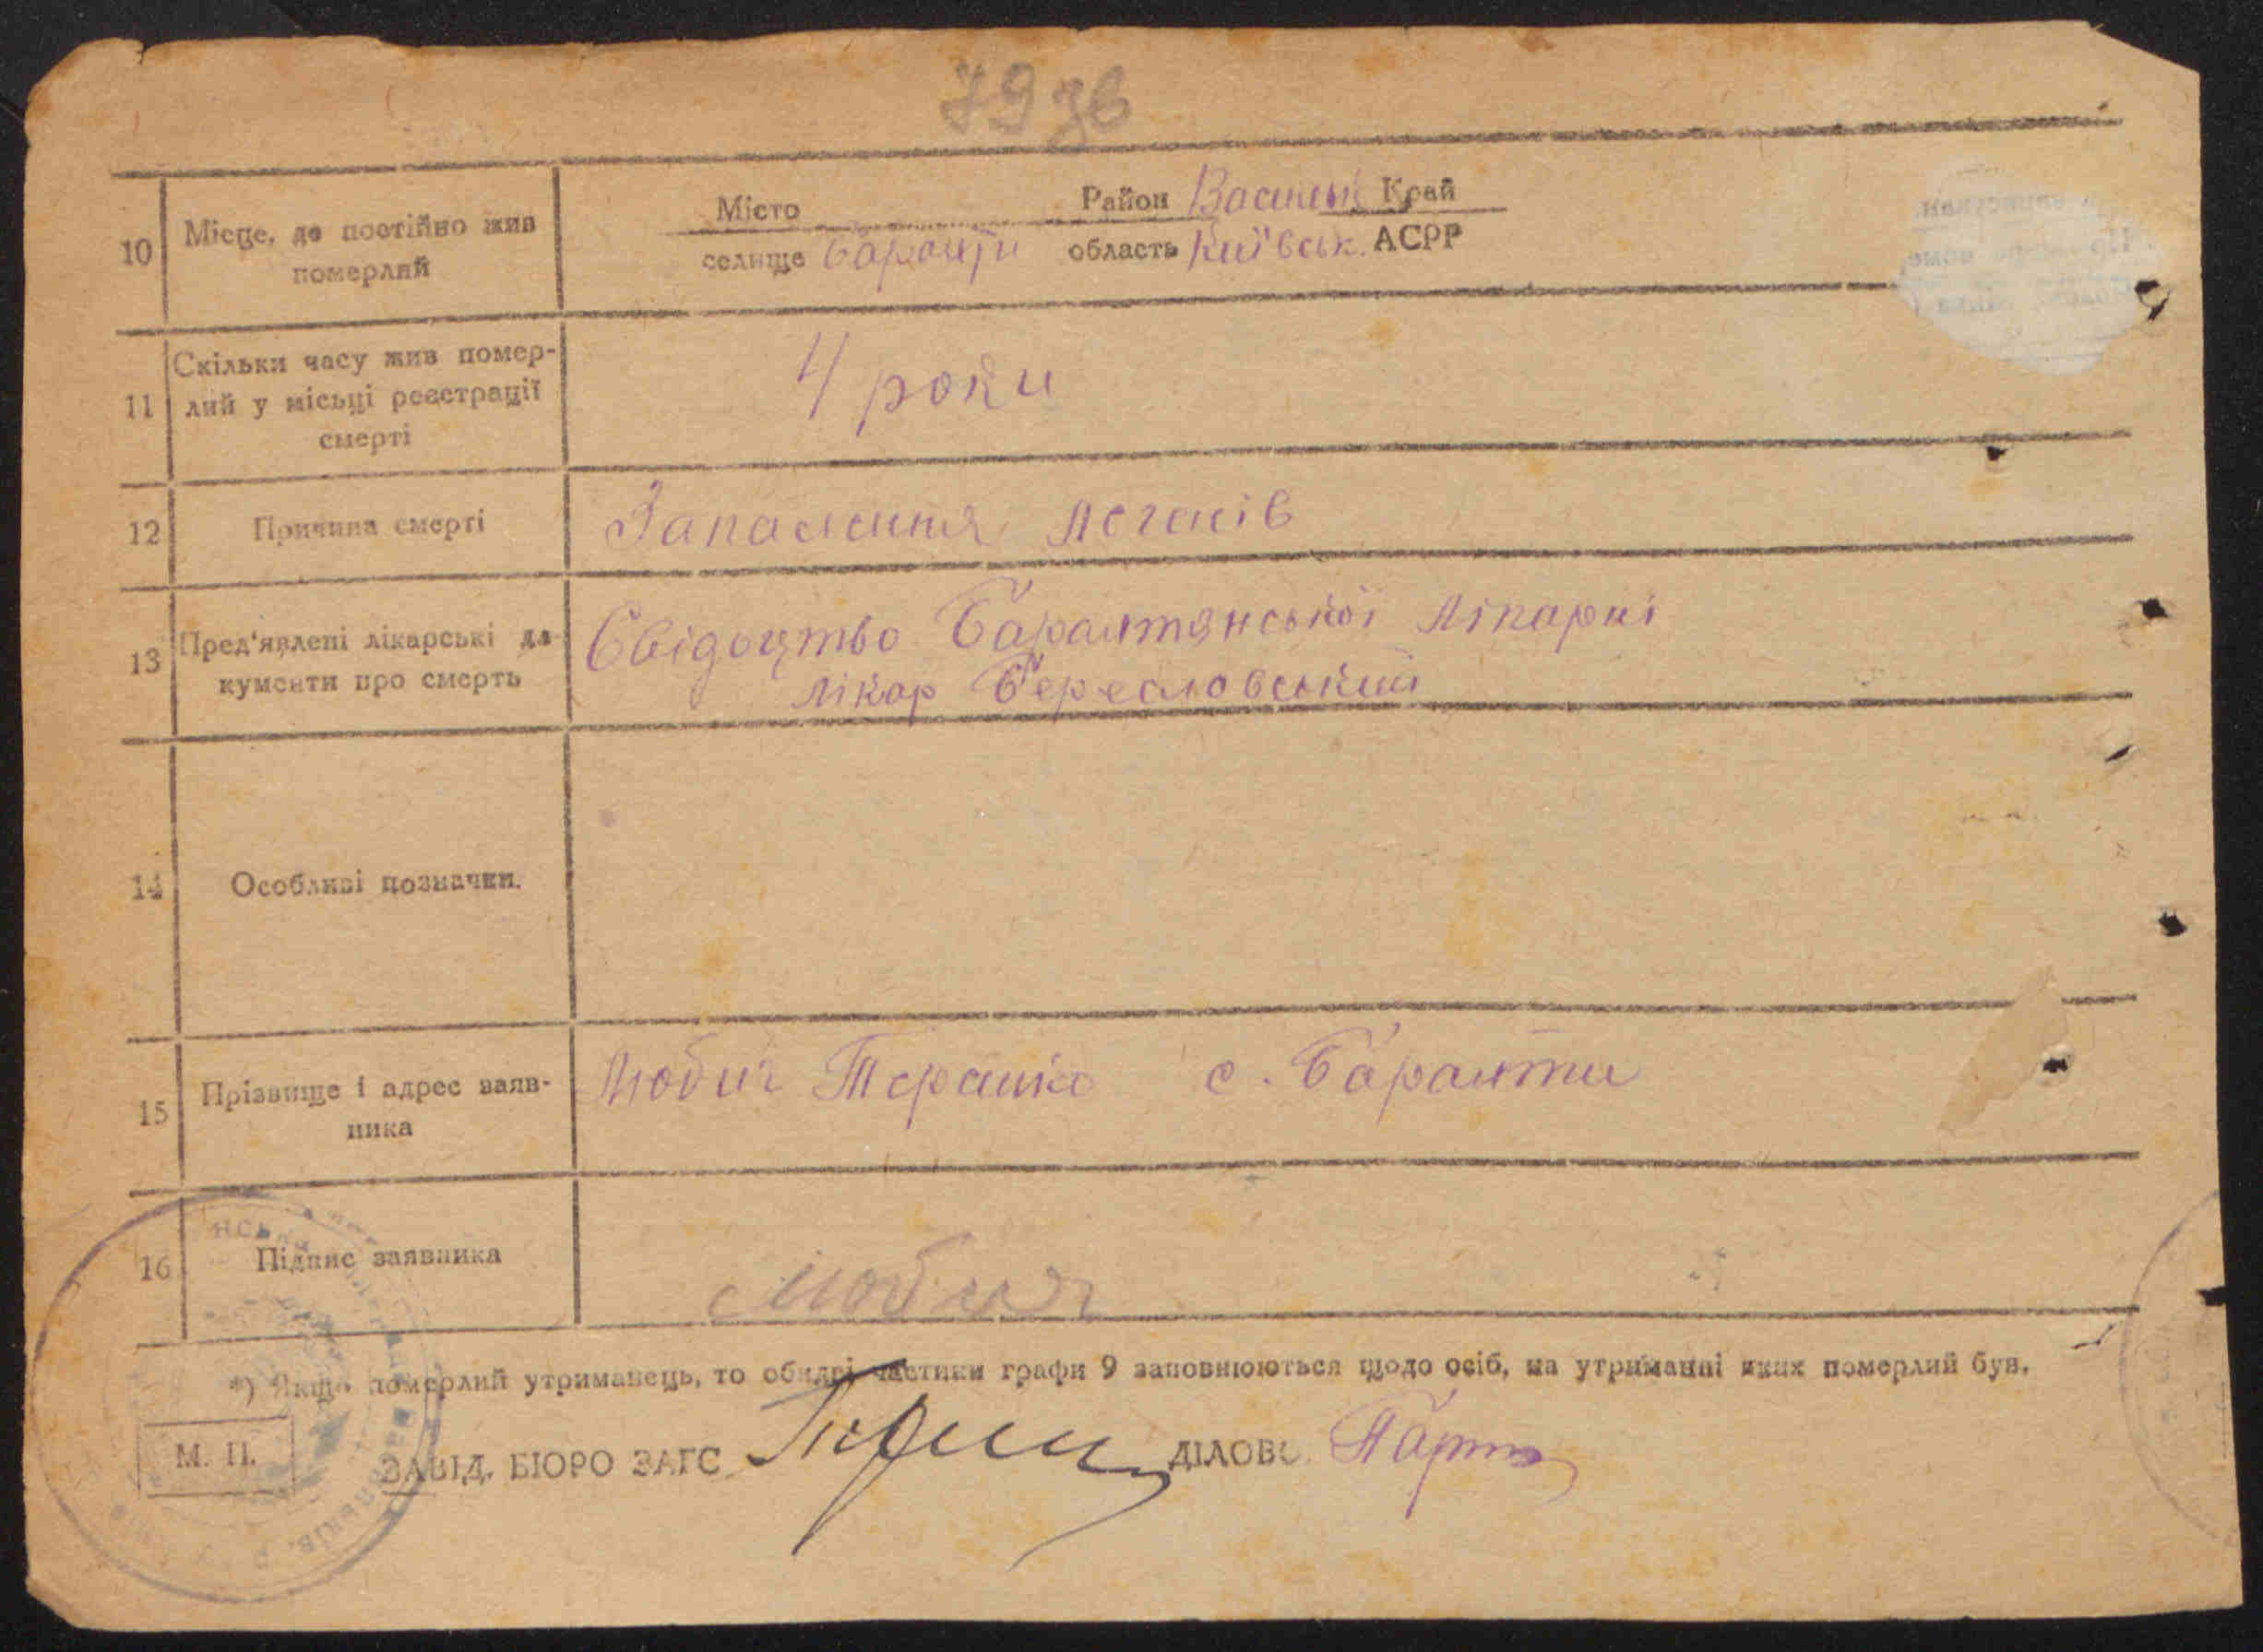 79 зв
10 Місце, де постійно жив померлий
Місто Район Васильк Край
селище Барахти область Київськ. АСРР
11 Скільки часу жив помер-
лий у місьці реєстрації
смерті
4 роки
12 Причина смерті Запалення легенів
13 Пред'явлені лікарські до-
кументи про смерть
Свідоцтво Барахтянської лікарні
лікар Бересловський
14 Особливі позначки.
15 Прізвище і адрес заяв-
ника
Любич с. Барахти
16 Підпис заявника Любич
*) Якщо померлий утриманець, то обидві частини графи 9 заповнюються щодо осіб, на утриманні яких померлий був.
М. П. ЗАВІД. БЮРО ЗАГС ДІЛОВ.